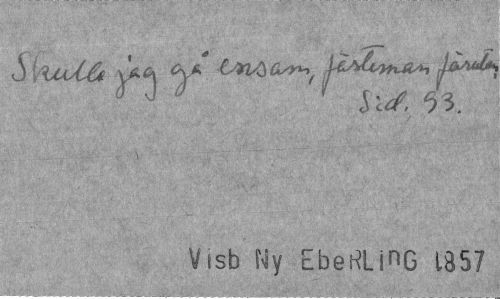 Skulle jag gå ensam, fästeman förutan,
Sid. 93.
Visb Ny EbeRLinG 1857